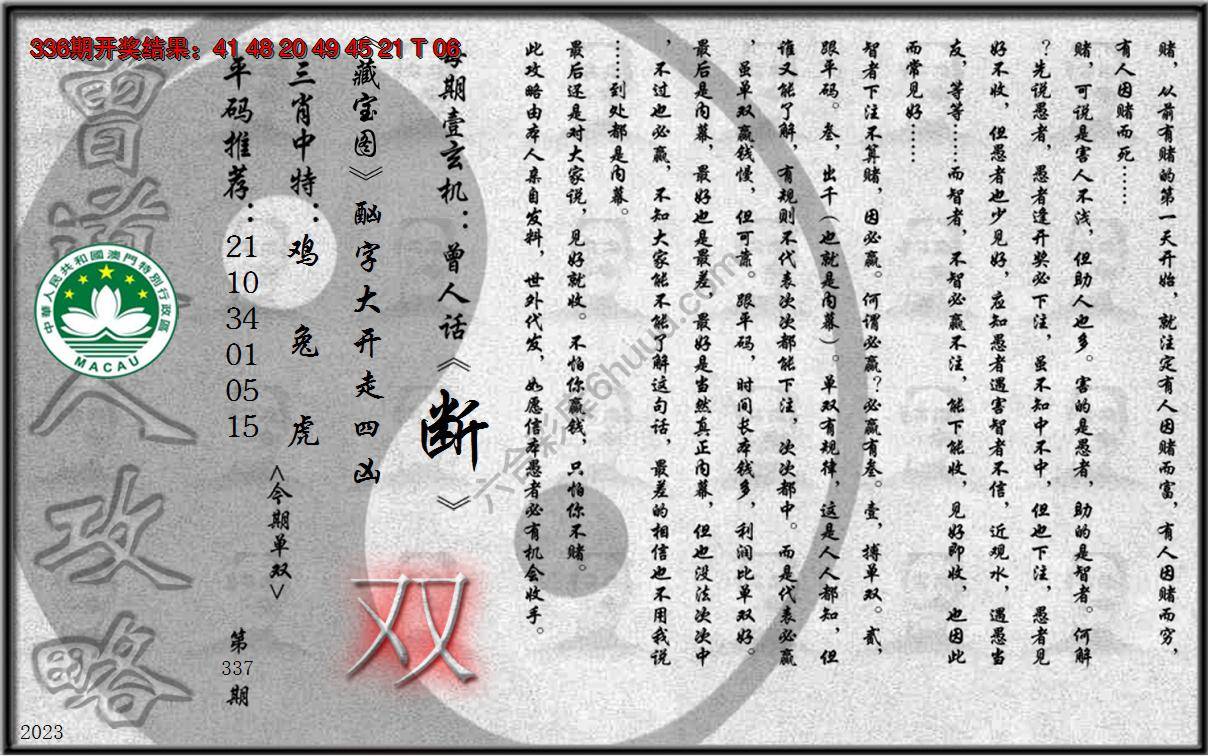 336期开奖结果：41 48 20 49 45 21 T 06
赌，从前有赌的第一天开始，就注定有人因赌而富，有人因赌而穷，
有人因赌而死……
赌，可说是害人不浅，但助人也多。害的是愚者，助的是智者。何解
？先说愚者，愚者逢开奖必下注，虽不知中不中，但也下注，愚者见
好不收，但愚者也少见好，应知愚者遇害智者不信，近观水，遇愚当
友，等等……而智者，不智必赢不注，能下能收，见好即收，也因此
而常见好……
智者下注不算赌，因必赢。何谓必赢？必赢有叁。壹，搏单双。贰，
跟平码。叁，出千（也就是内幕）。单双有规律，这是人人都知，但
谁又能了解，有规则不代表次次都能下注，次次都中。而是代表必赢
，虽单双赢钱慢，但可靠。跟平码，时间长本钱多，利润比单双好。
最后是内幕，最好也是最差，最好是当然真正内幕，但也没法次次中
，不过也必赢，不知大家能不能了解这句话，最差的相信也不用我说
……到处都是内幕。
最后还是对大家说，见好就收。不怕你赢钱，只怕你不赌。
此攻略由本人亲自发料，世外代发，如愿信本愚者必有机会收手。
每期壹玄机：曾人话《断》
《藏宝图》酗字大开走四凶
三肖中特：鸡 兔 虎
平码推荐：21 10 34 01 05 15
<今期单双>
双
第337期
曾道人攻略
中華人民共和國澳門特別行政區
MACAU
六合彩库6huuu.com
2023